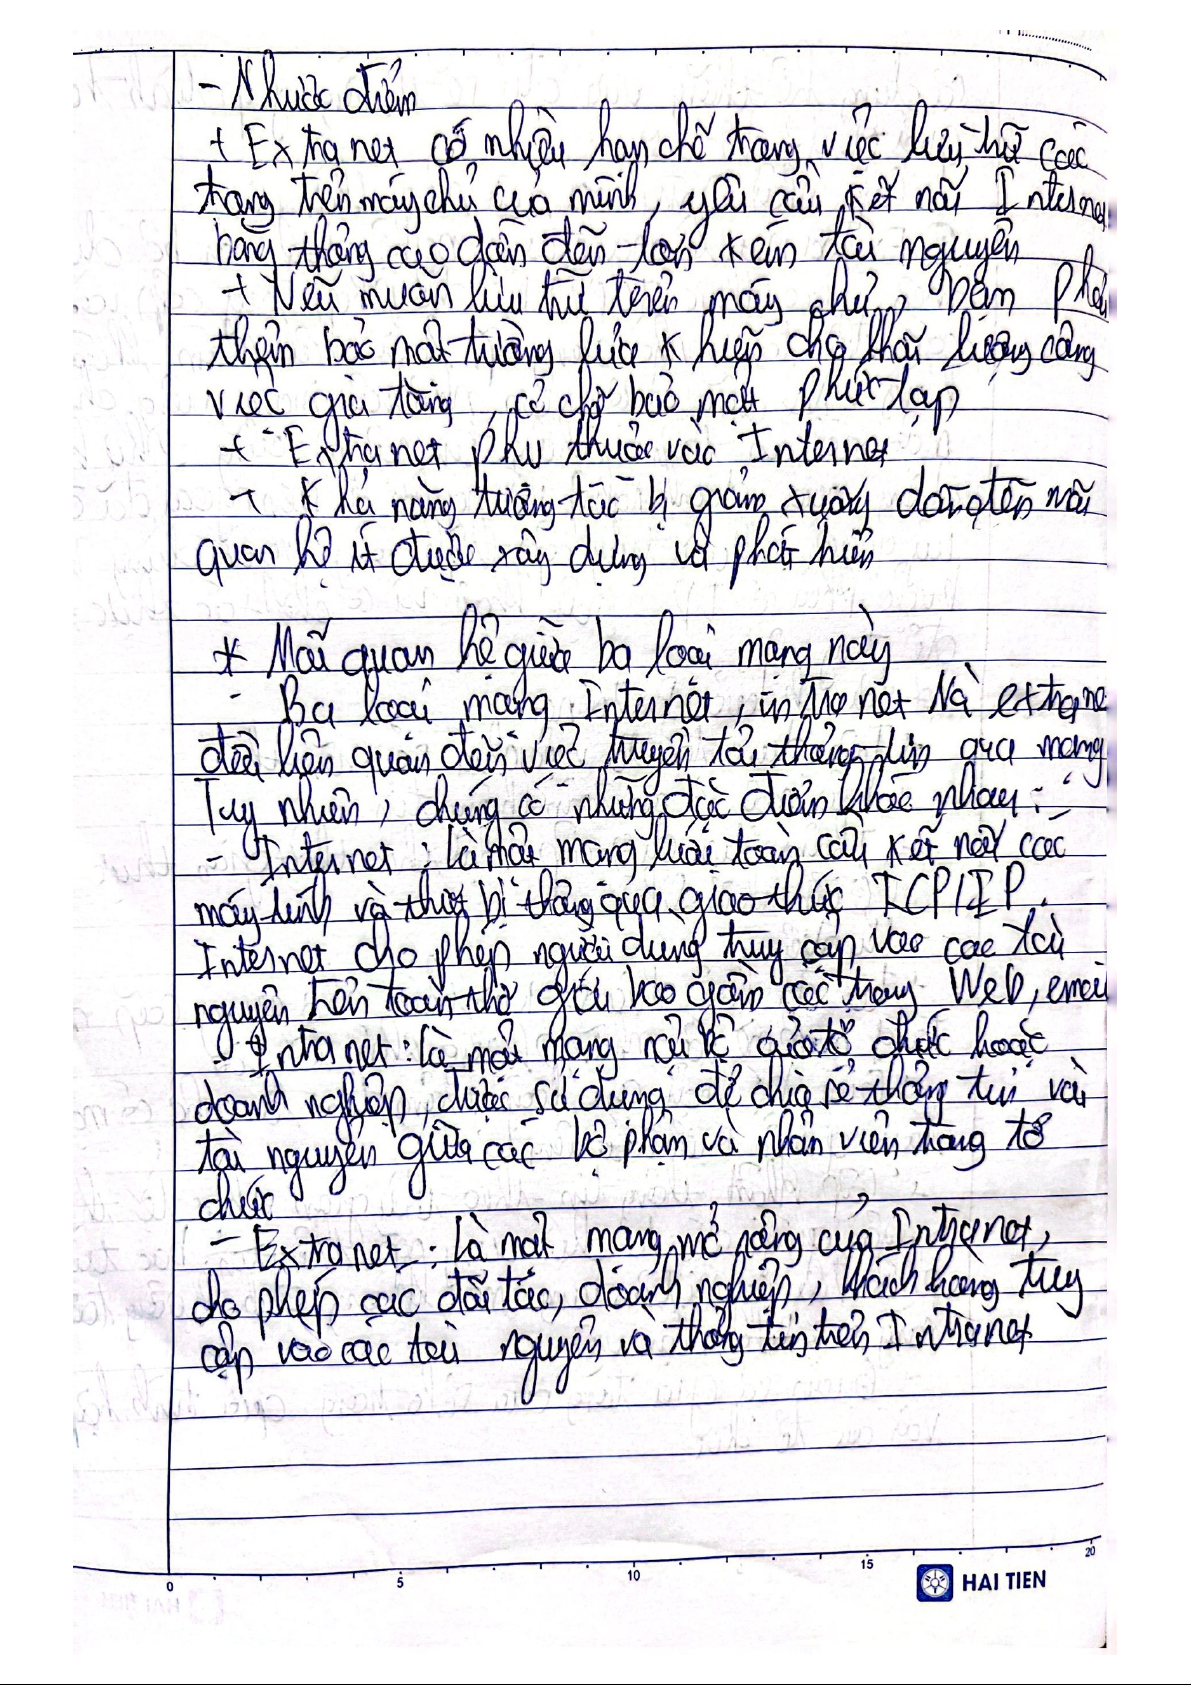 - Nhược điểm
+ Extranet có nhiều hạn chế trong việc lưu trữ các
trang trên máy chủ của mình, yêu cầu kết nối Internet
băng thông cao dẫn đến tốn kém tài nguyên
+ Nếu muốn lưu trữ trên máy chủ, bạn phải
thêm bảo mật tường lửa khiến cho khối lượng công
việc gia tăng, cơ chế bảo mật phức tạp
+ Extranet phụ thuộc vào Internet
+ Khả năng tương tác bị giảm xuống dẫn đến mối
quan hệ ít được xây dựng và phát triển
* Mối quan hệ giữa ba loại mạng này
- Ba loại mạng Internet, intranet và extrane
đều liên quan đến việc truyền tải thông tin qua mạng
Tuy nhiên, chúng có những đặc điểm khác nhau:
- Internet: Là một mạng lưới toàn cầu kết nối các
máy tính và thiết bị thông qua giao thức TCP/IP.
Internet cho phép người dùng truy cập vào các tài
nguyên trên toàn thế giới bao gồm các trang Web, email
- Intranet: là một mạng nội bộ của tổ chức hoặc
doanh nghiệp, được sử dụng để chia sẻ thông tin và
tài nguyên giữa các bộ phận và nhân viên trong tổ
chức
- Extranet: Là một mạng mở rộng của Intranet,
cho phép các đối tác, doanh nghiệp, khách hàng truy
cập vào các tài nguyên và thông tin trên Intranet
0 5 10 15 20
HAI TIEN